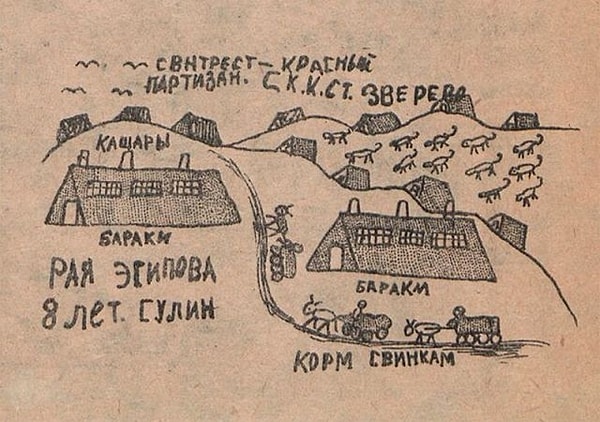 СВНТРЕСТ – КРАСНЫЙ
ПАРТИЗАН. С К.К.СТ. ЗВЕРЕВО
КАШАРЫ
БАРАКИ
РАЯ ЭСИПОВА
8 ЛЕТ. СУЛИН
БАРАКИ
КОРМ СВИНКАМ